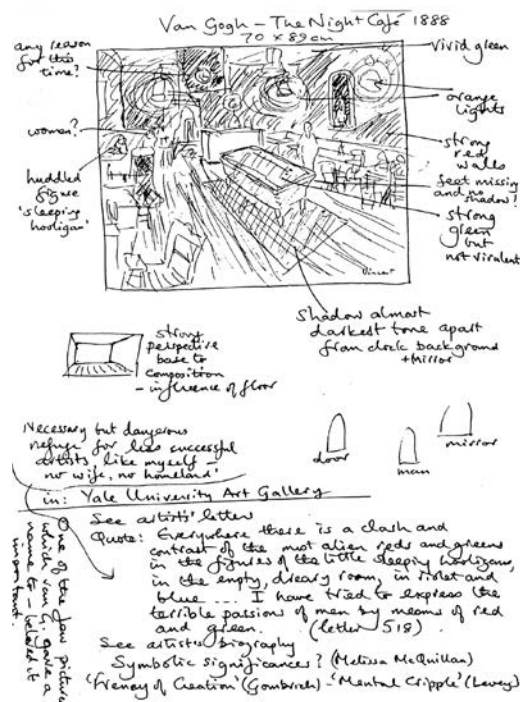 Van Gogh – The Night Café 1888
70 x 89 cm
any reason
for this
time?
women?
huddled
figure
'sleeping
hooligan'
vivid green
orange
lights
strong
red
walls
feet missing
and no
shadow!
strong
green
but
not virulent
Vincent
Shadow almost
darkest tone apart
from clock background
+ mirror
strong
perspective
base to
composition
– influence of floor
door
man
mirror
Necessary but dangerous
refuge for less successful
artists like myself –
no wife, no homeland'
in: Yale University Art Gallery
One of the few pictures
which van G. gave a
name to – believed it
important.
See artist's letters
Quote: Everywhere there is a clash and
contrast of the most alien reds and greens
in the figures of the little sleeping hooligans,
in the empty, dreary room, in violet and
blue .... I have tried to express the
terrible passion of men by means of red
and green. (letter 518)
See artists biography
Symbolic significances? (Melissa McQuillan)
'Frenzy of Creation' (Gombrich) – 'Mental Cripple' (Levey)